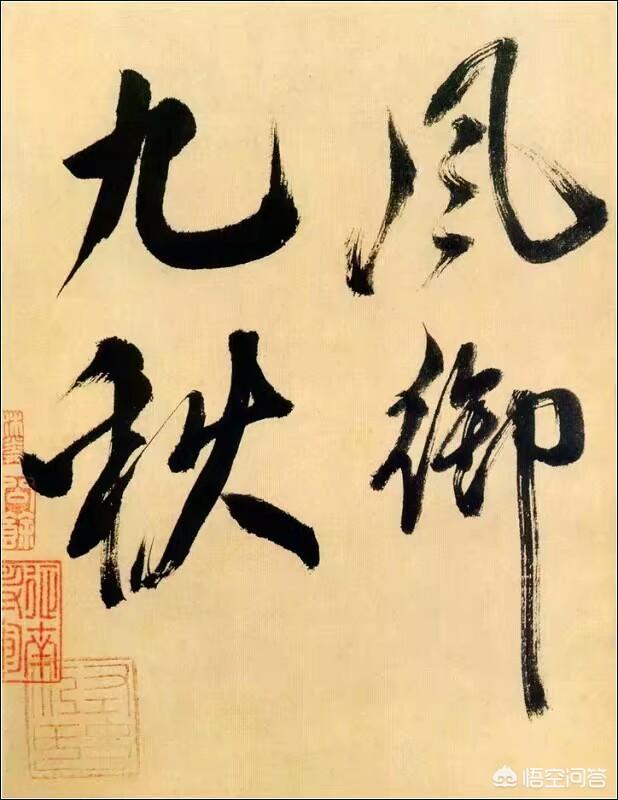 風御
九秋
悟空问答